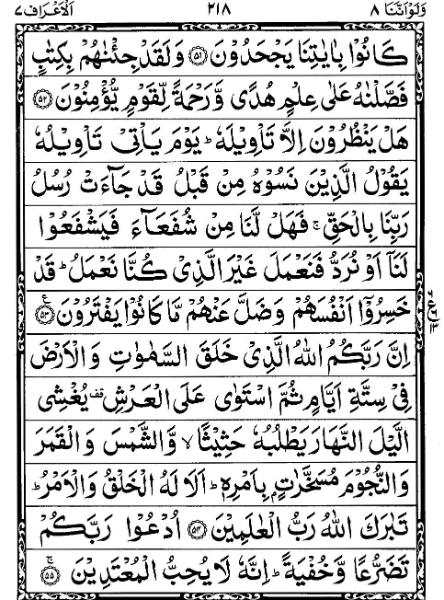 وَلَوْاَنَّنَا ٨ ٢١٨ اَلْاَعْرَاف ٧
كَانُوْا بِاٰيٰتِنَا يَجْحَدُوْنَ ﴿٥١﴾ وَلَقَدْ جِئْنٰهُمْ بِكِتٰبٍ
فَصَّلْنٰهُ عَلٰى عِلْمٍ هُدًى وَّرَحْمَةً لِّقَوْمٍ يُّؤْمِنُوْنَ ﴿٥٢﴾
هَلْ يَنْظُرُوْنَ اِلَّا تَاْوِيْلَهٗ ؕ يَوْمَ يَاْتِىْ تَاْوِيْلُهٗ
يَقُوْلُ الَّذِيْنَ نَسُوْهُ مِنْ قَبْلُ قَدْ جَآءَتْ رُسُلُ
رَبِّنَا بِالْحَقِّ ۚ فَهَلْ لَّنَا مِنْ شُفَعَآءَ فَيَشْفَعُوْا
لَنَاۤ اَوْ نُرَدُّ فَنَعْمَلَ غَيْرَ الَّذِىْ كُنَّا نَعْمَلُ ؕ قَدْ
خَسِرُوْۤا اَنْفُسَهُمْ وَضَلَّ عَنْهُمْ مَّا كَانُوْا يَفْتَرُوْنَ ﴿٥٣﴾
اِنَّ رَبَّكُمُ اللّٰهُ الَّذِىْ خَلَقَ السَّمٰوٰتِ وَ الْاَرْضَ
فِىْ سِتَّةِ اَيَّامٍ ثُمَّ اسْتَوٰى عَلَى الْعَرْشِ قف يُغْشِى
الَّيْلَ النَّهَارَ يَطْلُبُهٗ حَثِيْثًا ۙ وَّالشَّمْسَ وَ الْقَمَرَ
وَالنُّجُوْمَ مُسَخَّرٰتٍۭ بِاَمْرِهٖ ؕ اَلَا لَهُ الْخَلْقُ وَ الْاَمْرُ ؕ
تَبٰرَكَ اللّٰهُ رَبُّ الْعٰلَمِيْنَ ﴿٥٤﴾ اُدْعُوْا رَبَّكُمْ
تَضَرُّعًا وَّخُفْيَةً ؕ اِنَّهٗ لَا يُحِبُّ الْمُعْتَدِيْنَ ﴿٥٥﴾